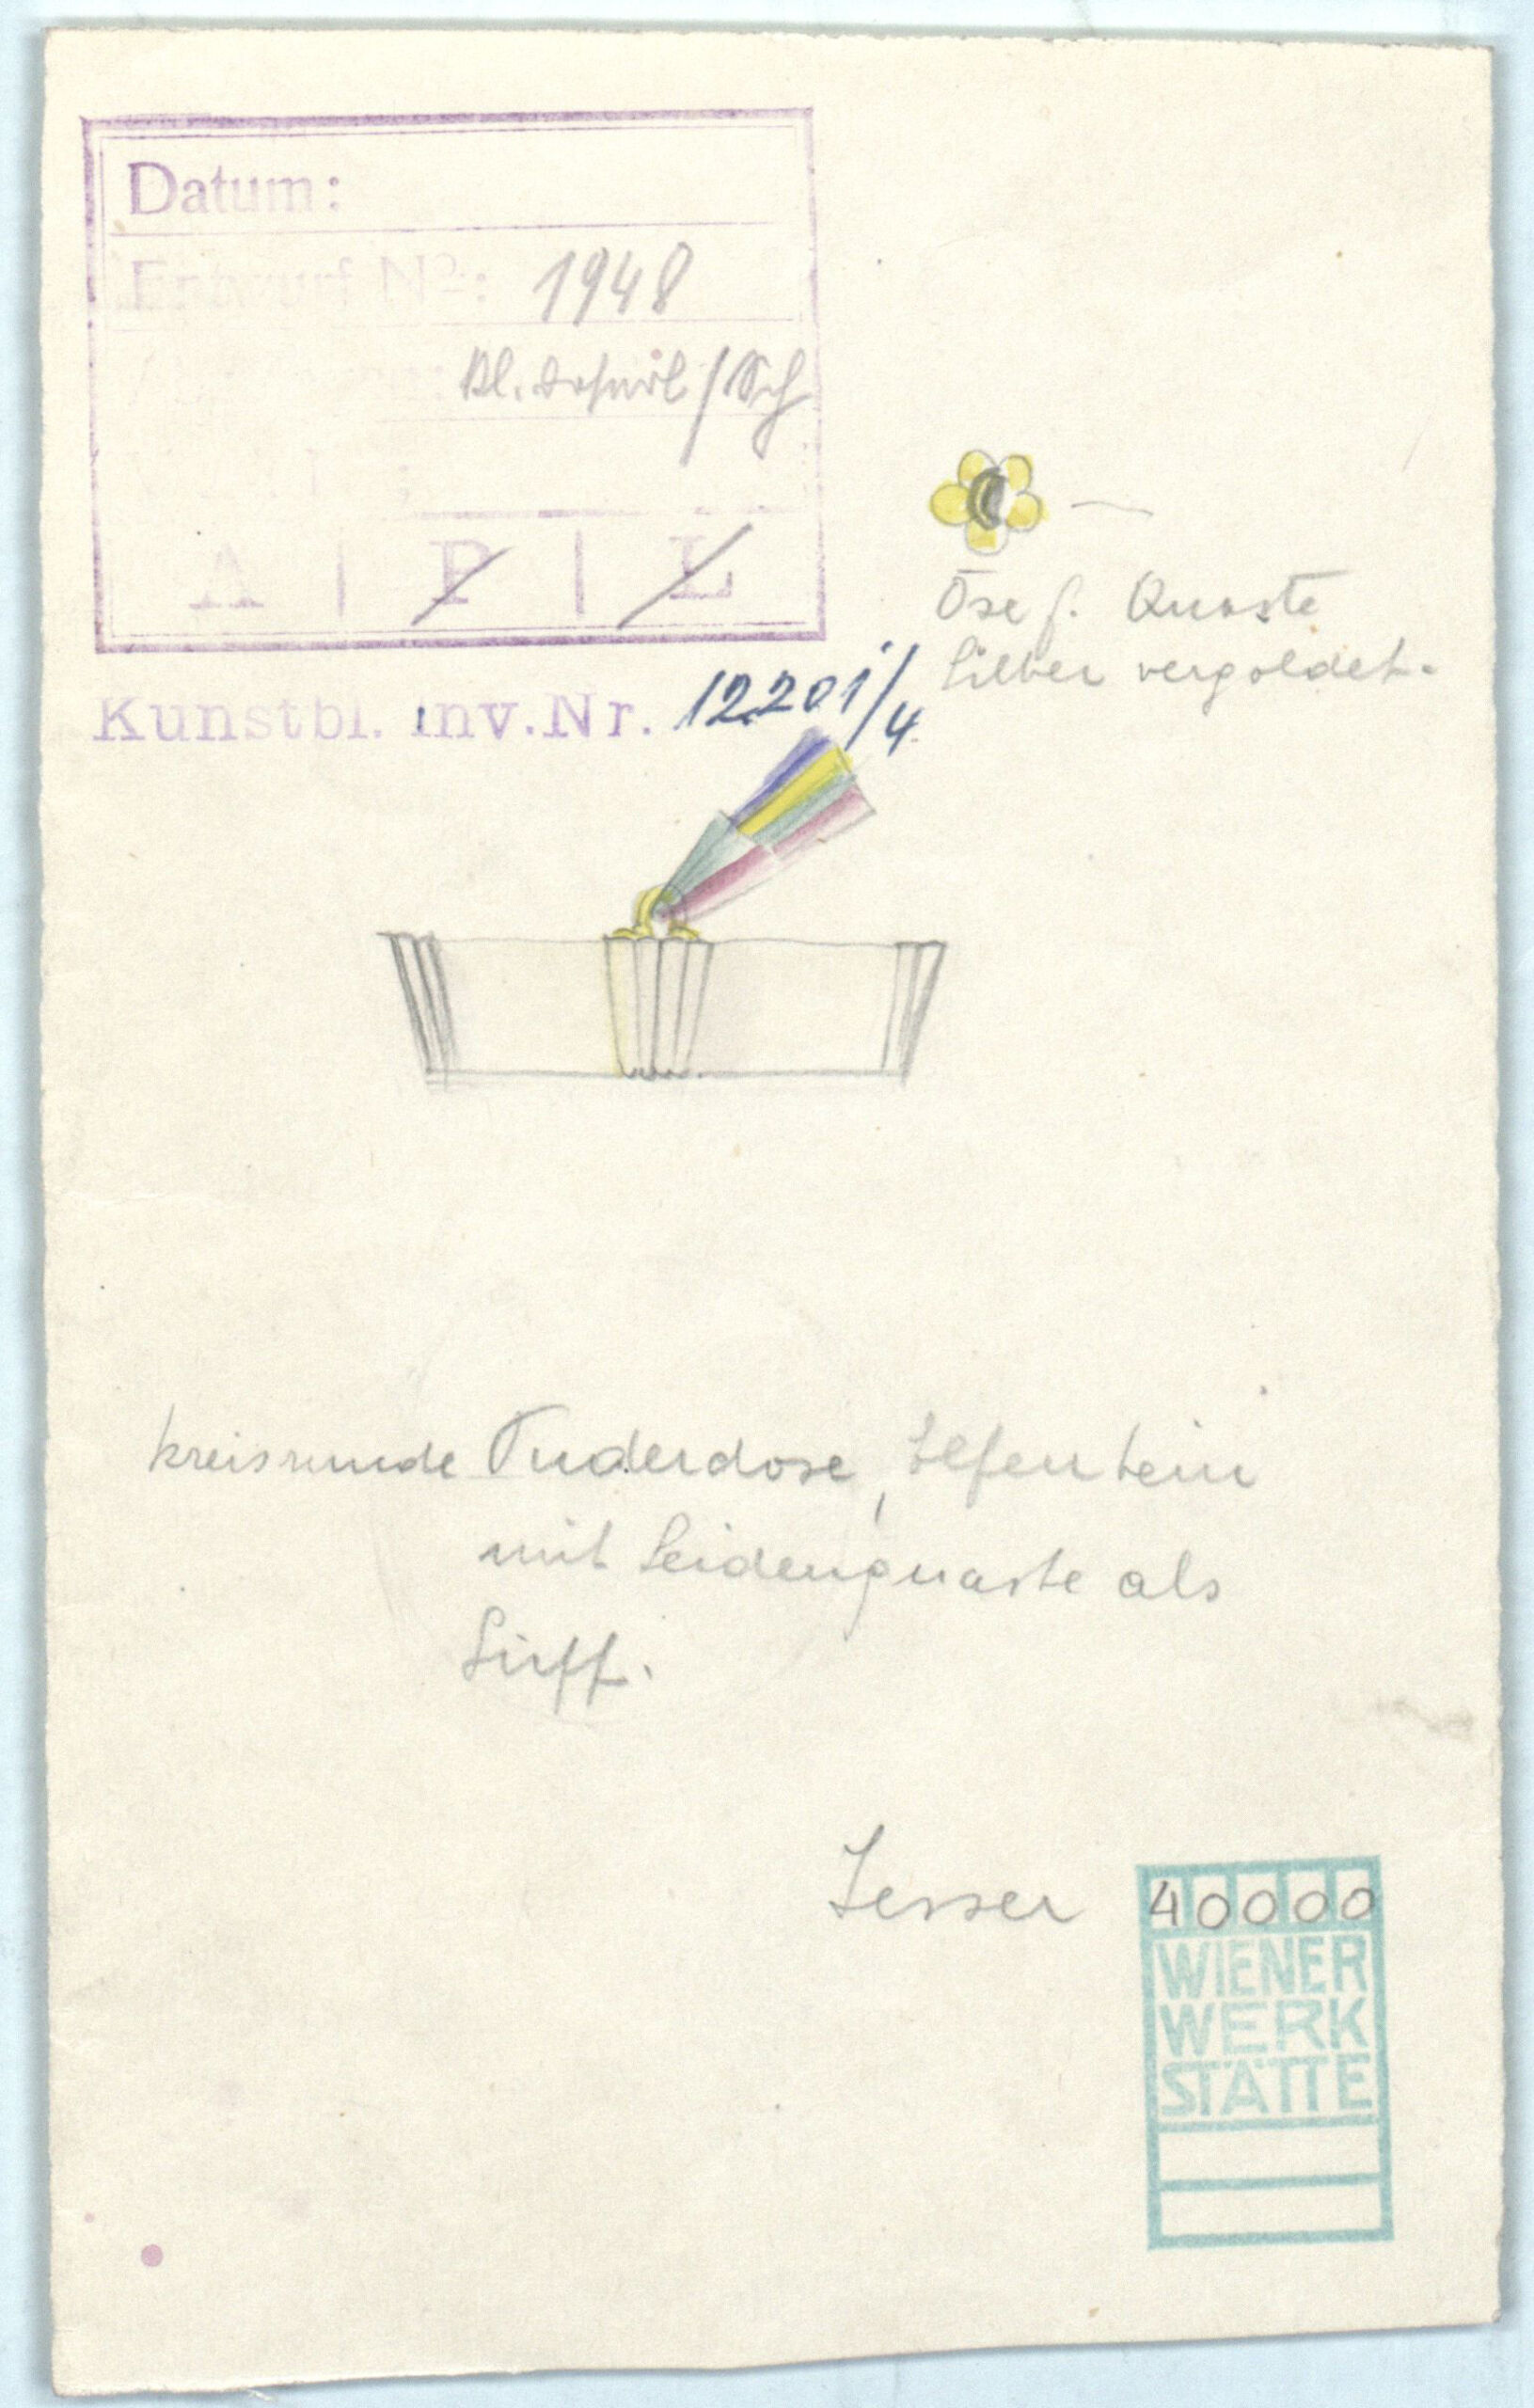 Datum:
Entwurf No: 1948
A | P | L
Kunstbl. Inv.Nr. 12201/4
Öse f. Quaste
Silber vergoldet.
kreisrunde Puderdose, Elfenbein
mit Seidenquaste als
Griff.
Lesser
40000
WIENER
WERK
STÄTTE